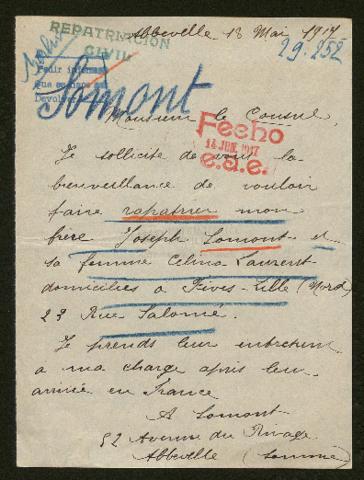 Abbeville 13 Mai 1917
REPATRIACION
CIVIL
29.252
Pedir informes
que
Devol
Somont
Monsieur le Consul,
Fecho
14 JUN. 1917
e.a.e.
Je sollicite de vous la
bienveillance de vouloir
faire rapatrier mon
frère Joseph Somont et
sa femme Celina Laurent
domiciliés a Fives-Lille (Nord)
23 Rue Salomé.
Je prends leur entretient
a ma charge après leur
arrivée en France
A Somont
52 Avenue du Rivage
Abbeville (Somme)